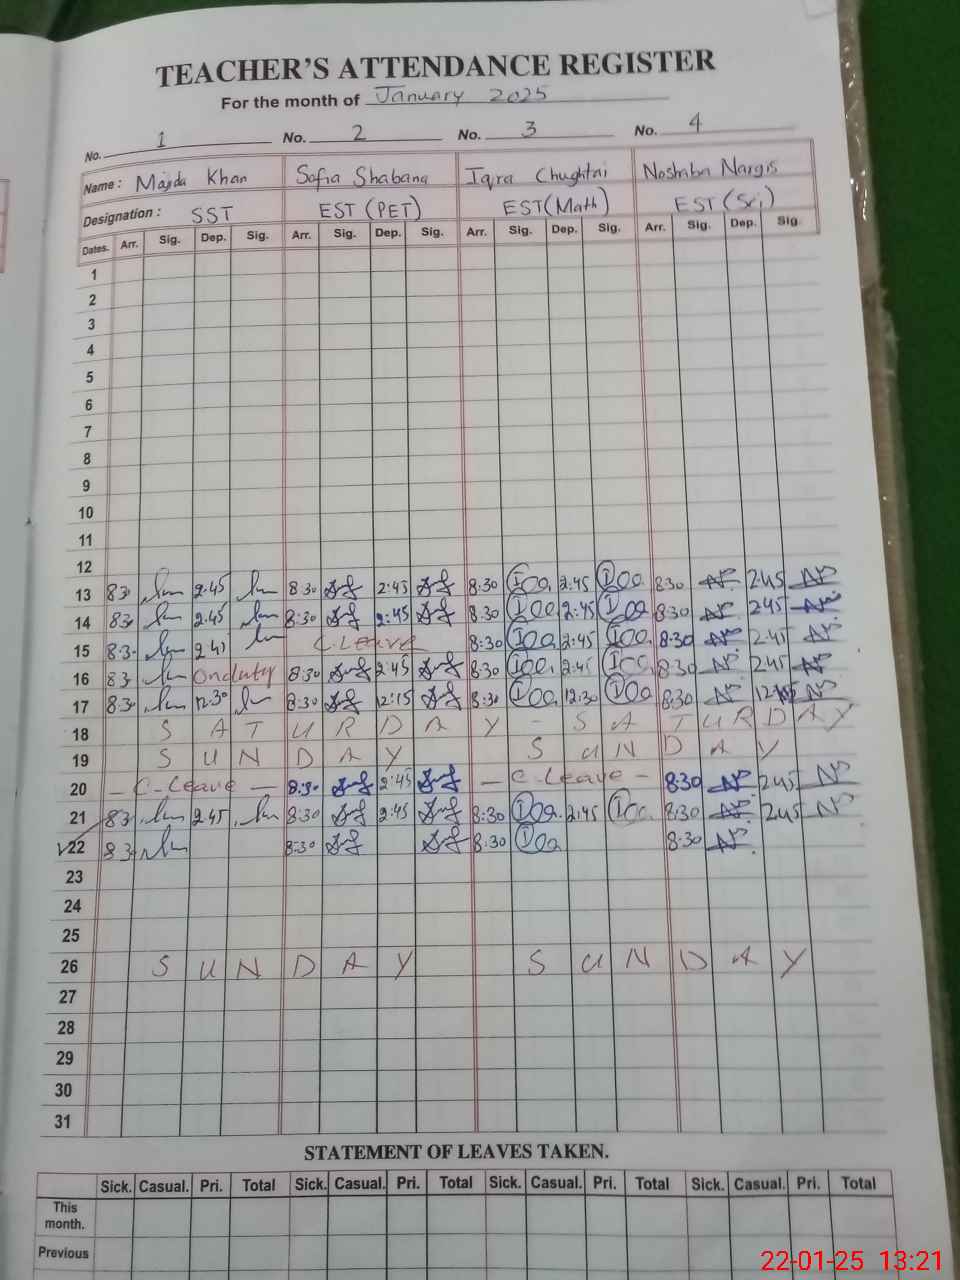 TEACHER'S ATTENDANCE REGISTER
For the month of January 2025
No. 1 No. 2 No. 3 No. 4
Name : Majda Khan Sofia Shabana Iqra Chughtai Noshaba Nargis
Designation : SST EST (PET) EST (Math) EST (Sci)
Dates. Arr. Sig. Dep. Sig. Arr. Sig. Dep. Sig. Arr. Sig. Dep. Sig. Arr. Sig. Dep. Sig.
1
2
3
4
5
6
7
8
9
10
11
12
13 830 2:45 8:30 2:45 8:30 2:45 8:30 2:45
14 830 2:45 8:30 2:45 8:30 2:45 8:30 2:45
15 8:30 2:45 C.Leave 8:30 2:45 8:30 2:45
16 830 On duty 8:30 2:45 8:30 2:45 8:30 2:45
17 8:30 12:30 8:30 12:15 8:30 12:30 8:30
18 S A T U R D A Y - S A T U R D A Y
19 S U N D A Y S U N D A Y
20 - C-Leave - 8:30 2:45 - C-Leave - 8:30 2:45
21 83 2:45 8:30 2:45 8:30 2:45 8:30 2:45
22 83 8:30 8:30 8:30
23
24
25
26 S U N D A Y S U N D A Y
27
28
29
30
31
STATEMENT OF LEAVES TAKEN.
Sick. Casual. Pri. Total Sick. Casual. Pri. Total Sick. Casual. Pri. Total Sick. Casual. Pri. Total
This month.
Previous
22-01-25 13:21